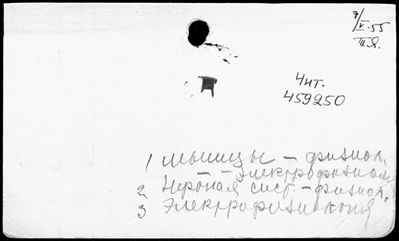 7/V-55
Чит.
459250
1 Мышцы - физиол.
- электрофизиол.
2 Нервная сист - физиол.
3 Электрофизиология